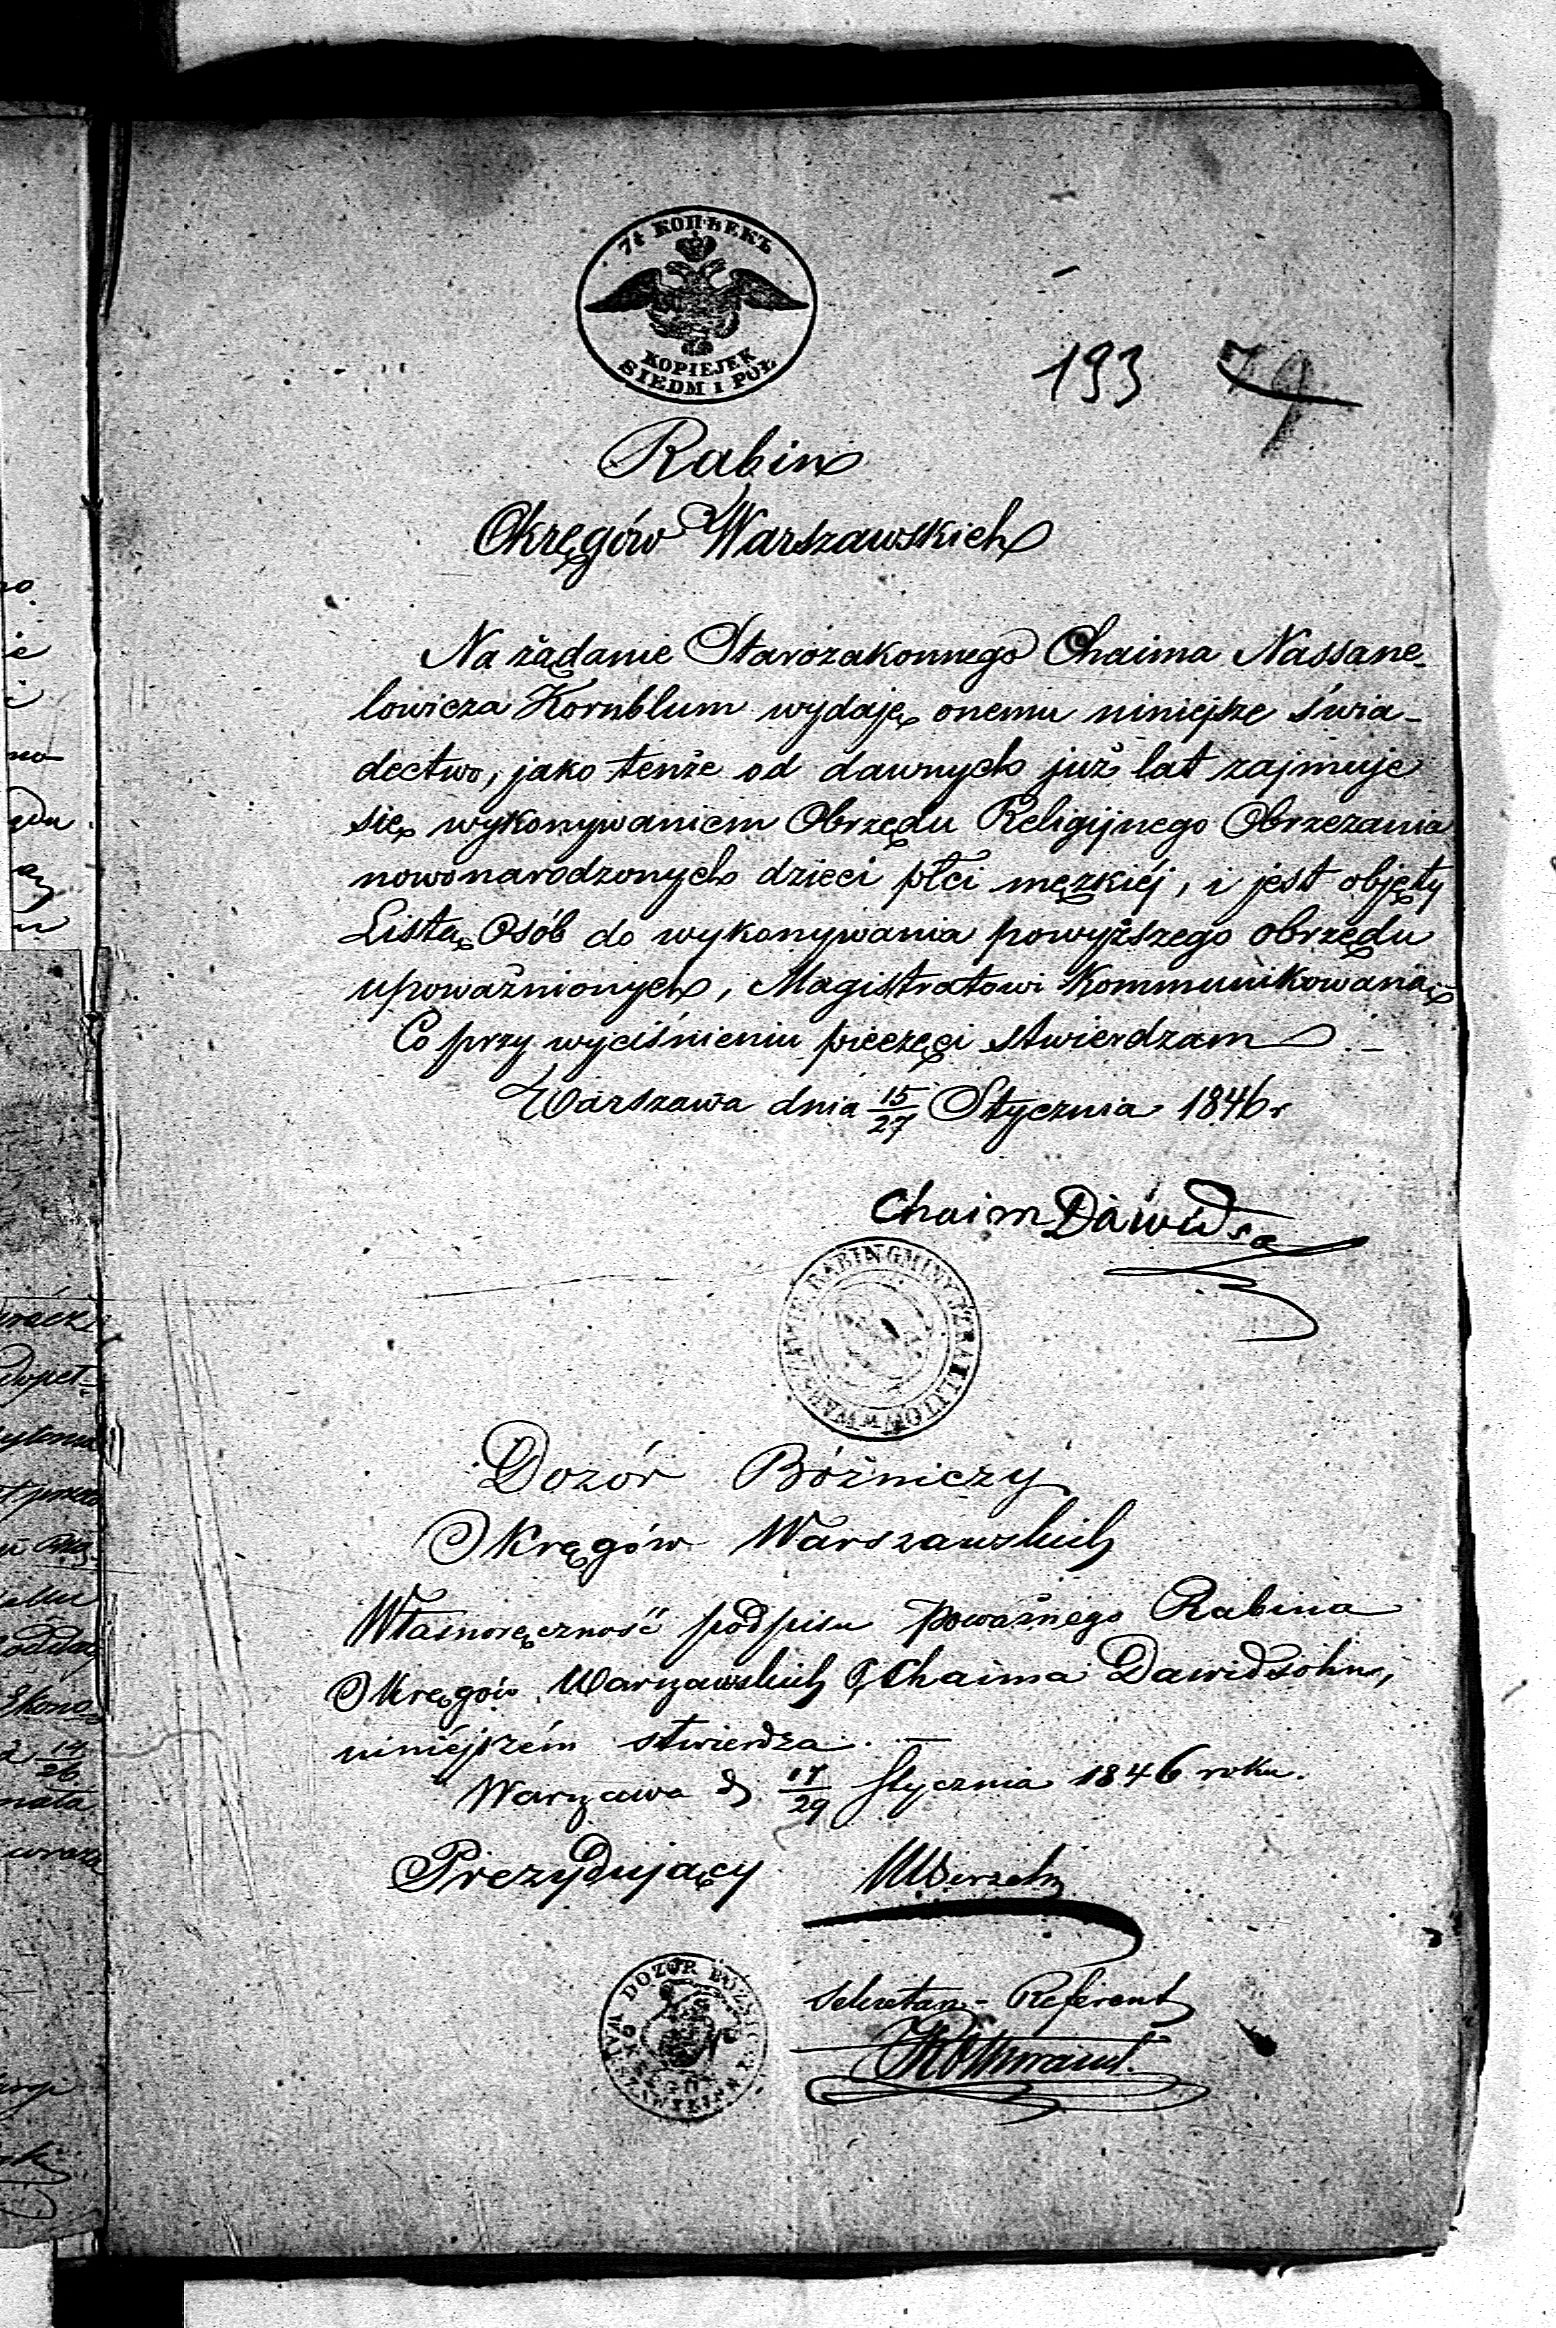 7½ КОПѢЕКЪ
KOPIEJEK
SIEDM I PÓŁ
193
79
Rabin
Okręgów Warszawskich
Na żądanie Starozakonnego Chaima Nassane-
lowicza Kornblum wydaję onemu niniejsze świa-
dectwo, jako tenże od dawnych już lat zajmuje
się wykonywaniem Obrzędu Religijnego Obrzezania
nowonarodzonych dzieci płci męzkiéj, i jest objęty
Listą Osób do wykonywania powyższego obrzędu
upoważnionych, Magistratowi Kommunikowaną
Co przy wyciśnieniu pieczęci stwierdzam
Warszawa dnia 15/27 Stycznia 1846 r
Chaim Dawidso
RABIN GMINY IZRAELITOW W WARSZAWIE
Dozór Bóżniczy
Okręgów Warszawskich
Własnoręczność podpisu poważnego Rabina
Okręgów Warszawskich Chaima Dawidsohna,
niniéjszém stwierdza. —
Warszawa d 17/29 Stycznia 1846 roku.
Prezydujący
DOZÓR BOŻNICZY OKRĘGÓW WARSZAWSKICH
Sekretarz - Referent